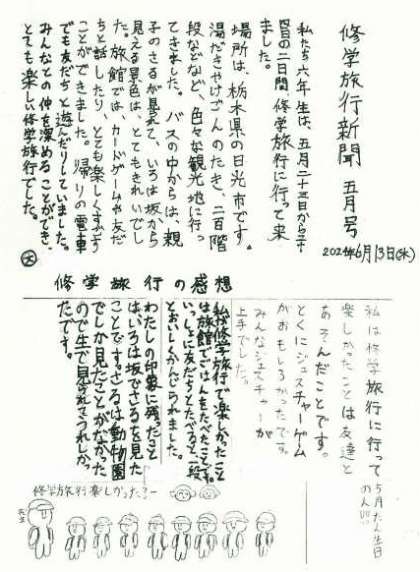 修学旅行新聞 五月号
2024年6月13日(木)
私たち六年生は、五月二十三日から二十
四日の二日間、修学旅行に行って来
ました。
場所は、栃木県の日光市です。
湯だきやけごんのたき、二百階
段などなど、色々な観光地に行っ
てきました。バスの中からは、親
子のさるが見えて、いろは坂から
見える景色は、とてもきれいでし
た。旅館では、カードゲームや友だ
ちと話したり、とても楽しくすごす
ことができました。帰りの電車
でも友だちと遊んだりしていました。
みんなとの仲を深めることができ、
とても楽しい修学旅行でした。
修学旅行の感想
5月たん生日
の人!!!
私は修学旅行に行って
楽しかったことは友達と
あそんだことです。
とくにジェスチャーゲーム
がおもしろかったです。
みんなジェスチャーが
上手でした。
私が修学旅行で楽しかったこと
は旅館でごはんをたべたことです。
いっしょに友だちとたべると、一段
とおいしくかんじられました。
わたしの印象に残ったこと
はいろは坂でさるを見た
ことです。さるは動物園
でしか見たことがなかった
ので生で見られてうれしかっ
たです。
修学旅行楽しかったー
先生